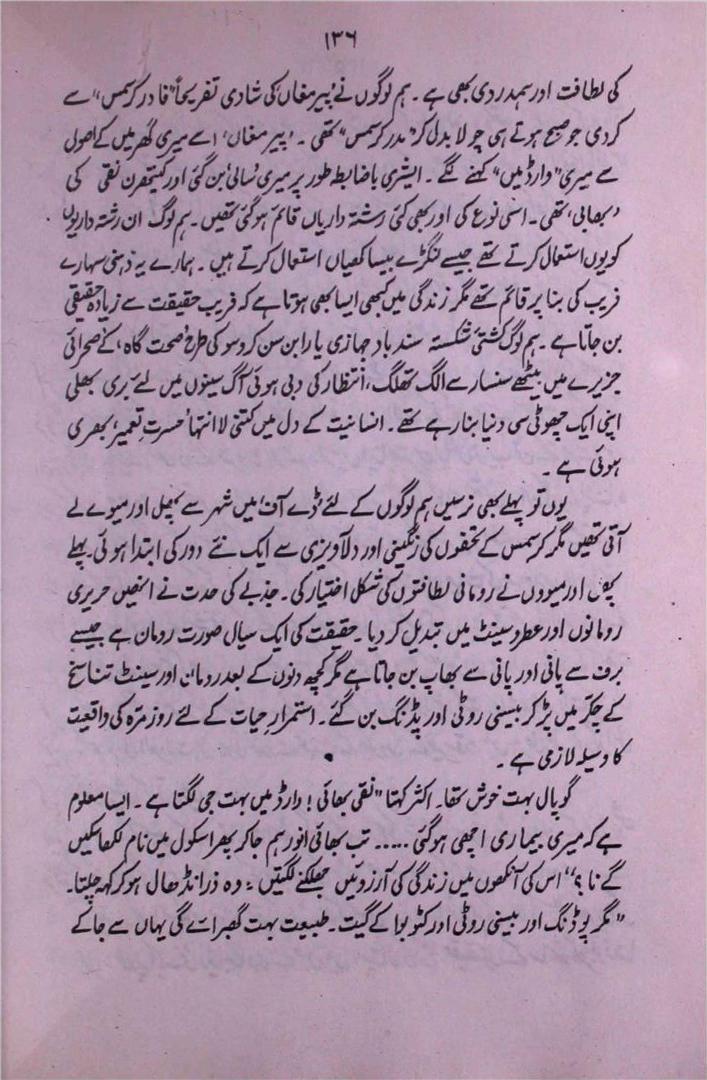 ۱۳۶
کی لطافت اور ہمدردی بھی ہے ۔ ہم لوگوں نے ’پیر مغاں‘ کی شادی تفریحاً ”فادر کرسمس“ سے
کر دی جو صبح ہوتے ہی چولا بدل کر ”مدر کرسمس“ تھی ۔ ’پیر مغاں‘ اے میری گھر میں کے اصول
سے میری ”وارڈ میں“ کہنے لگے ۔ ایشری باضابطہ طور پر میری ’سالی‘ بن گئی اور کیتھرن نقی کی
’بھابی‘ تھی ۔ اسی نوع کی اور بھی کئی رشتہ داریاں قائم ہو گئی تھیں ۔ ہم لوگ ان رشتہ داریوں
کو یوں استعمال کرتے تھے جیسے لنگڑے بیساکھیاں استعمال کرتے ہیں ۔ ہمارے یہ ذہنی سہارے
فریب کی بنا پر قائم تھے مگر زندگی میں کبھی ایسا بھی ہوتا ہے کہ فریب حقیقت سے زیادہ حقیقی
بن جاتا ہے ۔ ہم لوگ کشتیٔ شکستہ سندباد جہازی یا رابن سن کروسو کی طرح ’صحت گاہ‘ کے صحرائی
جزیرے میں بیٹھے سنسار سے الگ تھلگ، انتظار کی دبی ہوئی آگ سینوں میں لئے بری بھلی
اپنی ایک چھوٹی سی دنیا بنا رہے تھے ۔ انسانیت کے دل میں کتنی لا انتہا ’حسرتِ تعمیر‘ بھری
ہوئی ہے ۔
یوں تو پہلے بھی نرسیں ہم لوگوں کے لئے ’ڈے آف‘ میں شہر سے پھل اور میوے لے
آتی تھیں مگر کرسمس کے تحفوں کی رنگینی اور دلآویزی سے ایک نئے دور کی ابتدا ہوئی ۔ پہلے
پھل اور میووں نے رومانی لطافتوں کی شکل اختیار کی ۔ جذبے کی حدت نے انھیں حریری
رومانوں اور عطر و سینٹ میں تبدیل کر دیا ۔ حقیقت کی ایک سیال صورت رومان ہے جیسے
برف سے پانی اور پانی سے بھاپ بن جاتا ہے مگر کچھ دنوں کے بعد رومان اور سینٹ تناسخ
کے چکر میں پڑ کر بیسنی روٹی اور پڈنگ بن گئے ۔ استمرارِ حیات کے لئے روزمرہ کی واقعیت
کا وسیلہ لازمی ہے ۔
گوپال بہت خوش تھا ۔ اکثر کہتا ”نقی بھائی ! وارڈ میں بہت جی لگتا ہے ۔ ایسا معلوم
ہے کہ میری بیماری اچھی ہو گئی ..... تب بھائی انور ہم جا کر پھر اسکول میں نام لکھا سکیں
گے نا ؟“ اس کی آنکھوں میں زندگی کی آرزوئیں جھلکنے لگتیں ۔ وہ ذرا نڈھال ہو کر کہہ چلتا ۔
”مگر پوڈنگ اور بیسنی روٹی اور کٹو بوا کے گیت ۔ طبیعت بہت گھبرائے گی یہاں سے جا کے